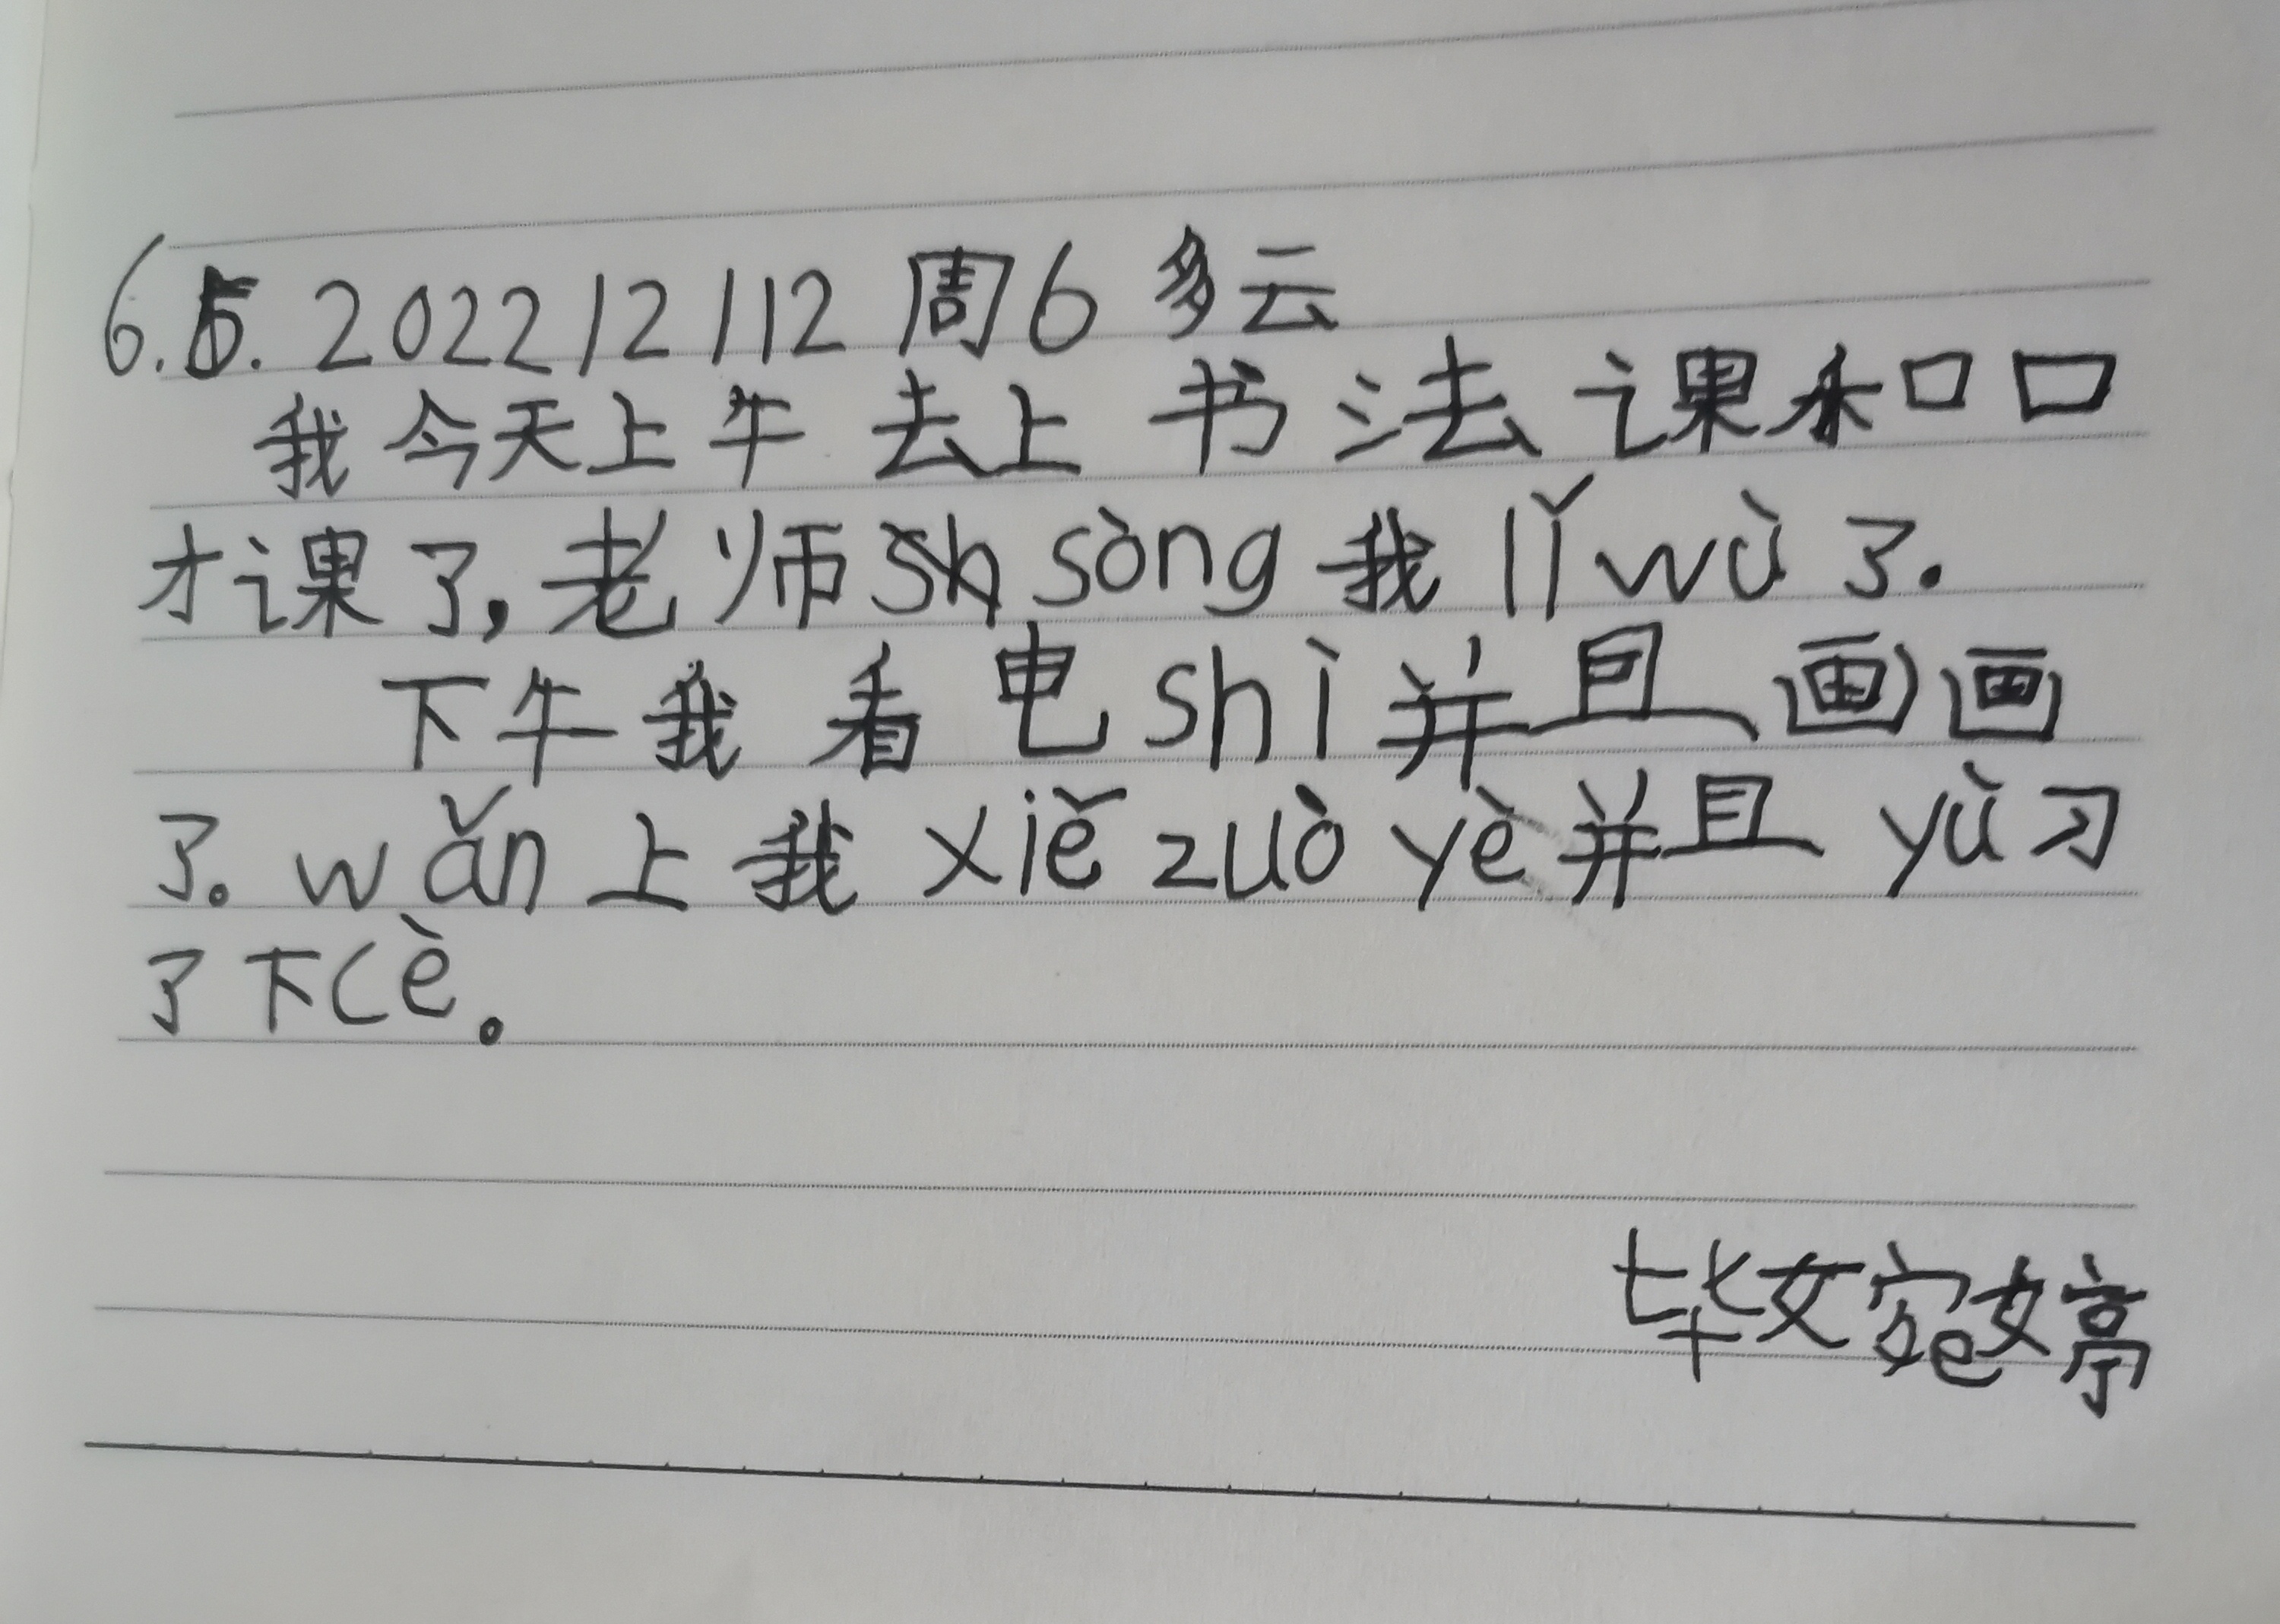 6.5. 2022/2/12 周6 多云
我今天上午去上书法课和口
才课了，老师sòng我lǐ wù了.
下午我看电shì并且画画
了。wǎn上我xiě zuò yè并且yù习
了下cè。
毕婉婷